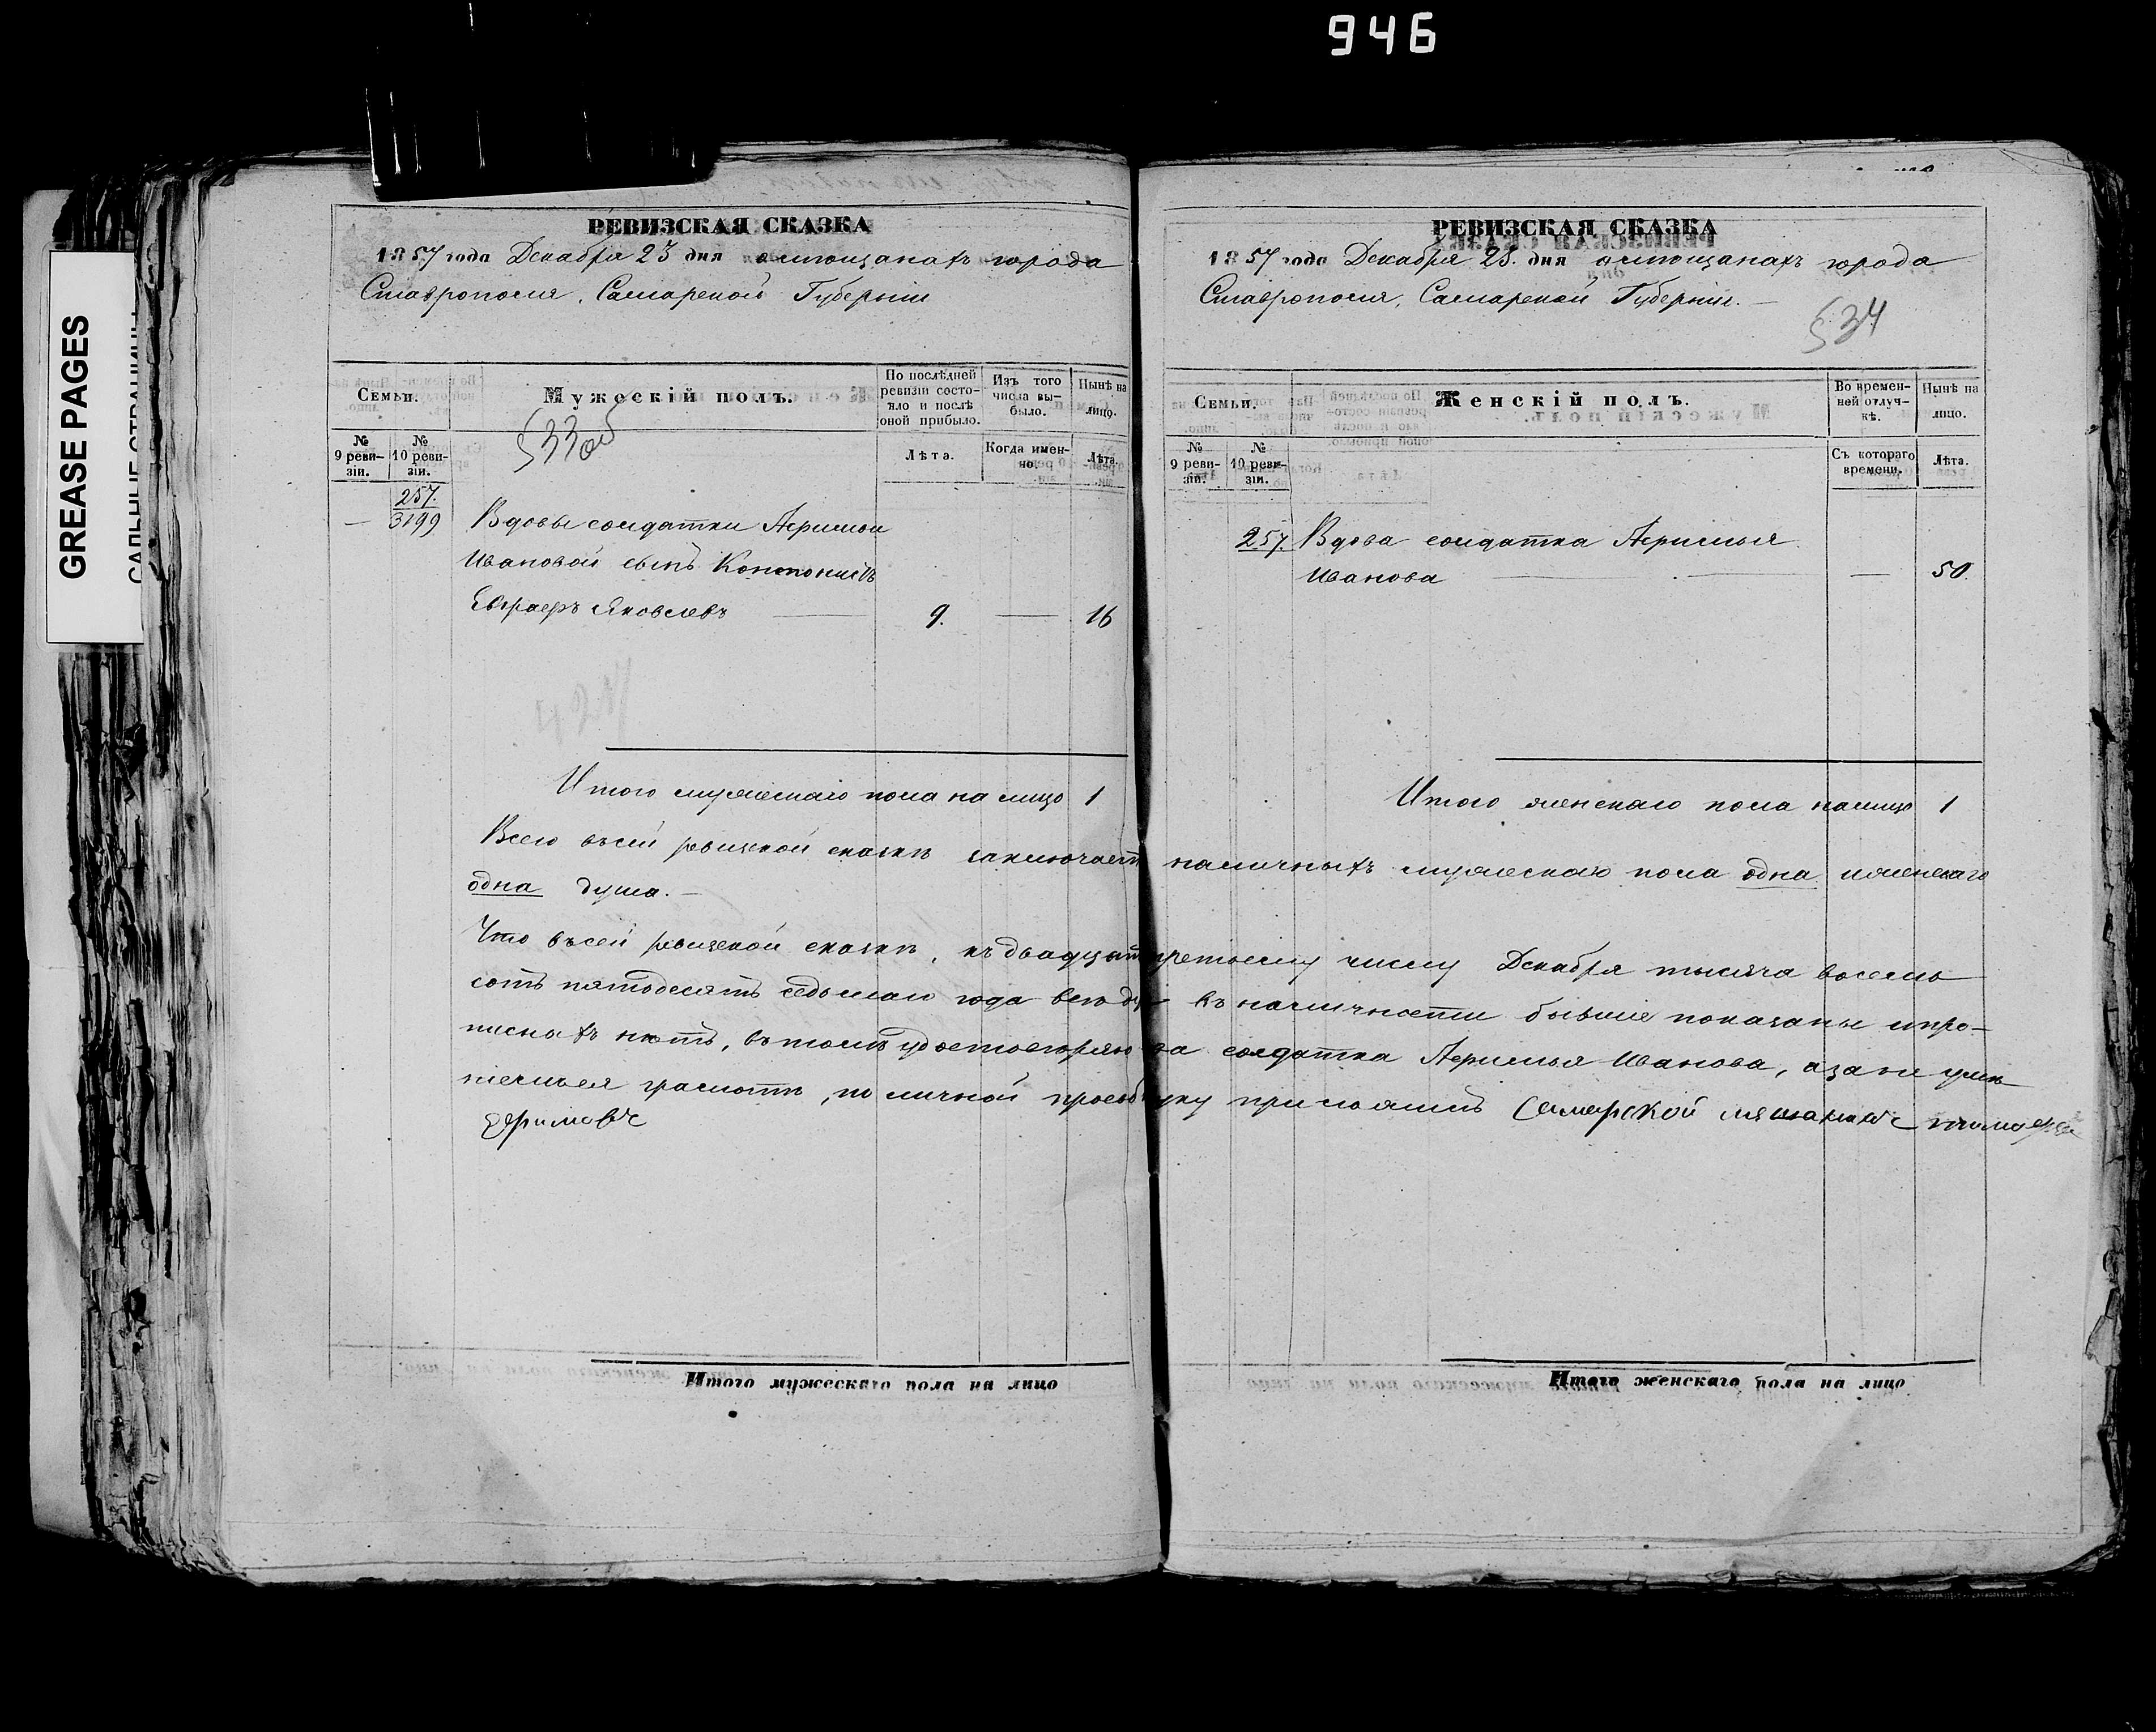 946
GREASE PAGES
РЕВИЗСКАЯ СКАЗКА
1857 года Декабря 23 дня о мещанахъ города
Ставрополя, Самарской Губерніи
533 об
Семьи.
Мужескій полъ.
По послѣдней ревизіи состояло и послѣ оной прибыло.
Изъ того числа выбыло.
Нынѣ на лицо.
№ 9 ревизіи.
№ 10 ревизіи.
Лѣта.
Когда именно.
Лѣта.
257.
— 3199 Вдовы солдатки
Ивановой сынъ
Яковлевъ — 9. — 16
Итого мужескаго пола на лицо 1
РЕВИЗСКАЯ СКАЗКА
1857 года Декабря 23. дня о мещанахъ города
Ставрополя, Самарской Губерніи. —
534
Семьи.
Женскій полъ.
Во временной отлучкѣ.
Нынѣ на лицо.
№ 9 ревизіи.
№ 10 ревизіи.
Съ котораго времени.
Лѣта.
257. Вдова солдатка
Иванова — — 50.
Итого женскаго пола налицо 1
Всего въ сей ревизской сказкѣ заключает наличныхъ мужескаго пола одна и женскаго
одна душа. —
Что въ сей ревизской сказкѣ, къ двадцать третьему числу Декабря тысяча восемь
сотъ пятьдесятъ седьмаго года всѣ въ наличности бывшіе показаны и про-
писныхъ нѣтъ, въ томъ солдатка Иванова, а за не умѣ
ніемъ ея грамотѣ, по личной приложилъ Самарской
Итого мужескаго пола на лицо
Итого женскаго пола на лицо